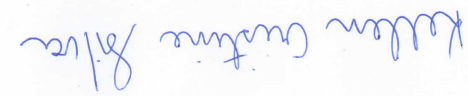 Kellen Cristine Silva